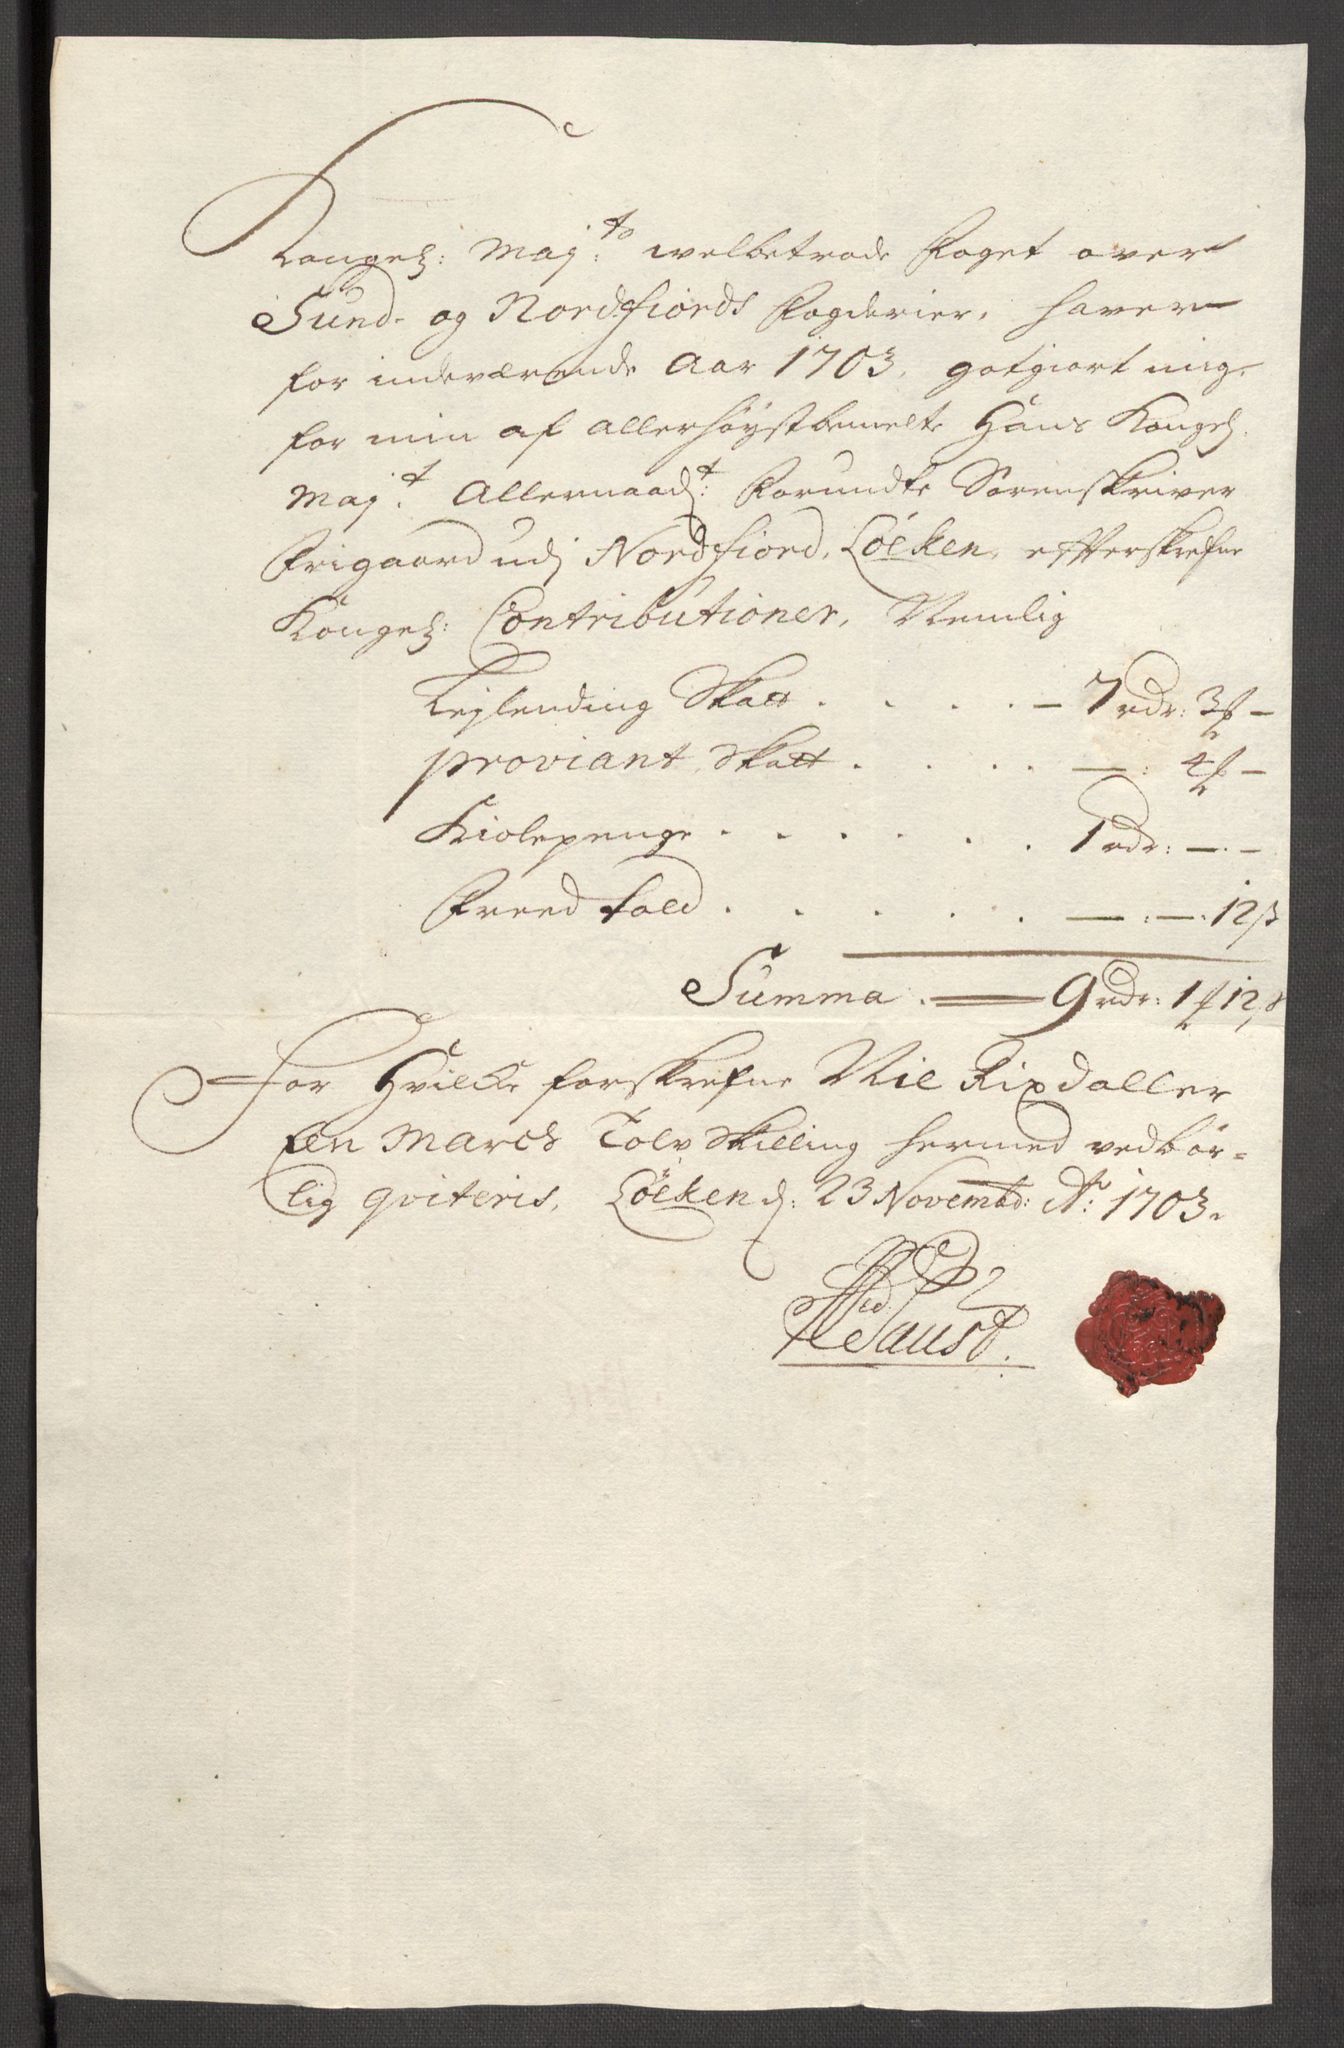 Kongel: Maj:ts welbetrode Foget over
Sund- og Nordfiords Fogderier, hafver
for indeværende Aar 1703. gotgiort mig,
for min af allerhöystbemelte Hans Kongel.
Maj:t Allernaad:t forundte Sorenskriver
Frigaard udj Nordfiord, Löcken, effterskrefne
Kongel: Contributioner, Nemlig
Lejlending Skatt . . . . — 7 rdr: 3 ƒ —
proviant Skatt . . . . — : 4 ƒ —
Kiolepenge . . . . . . 1 rdr: — . —
Freed told . . . . . — : — . 12 β
Summa . — 9 rdr: 1 ƒ 12 β
For Hvilcke forskrefne Nie Rixdaller
Een Marck Tolv Skilling hermed vedbör-
lig qviteris, Löcken d: 23 Novembd: Ao: 1703.
Faust.